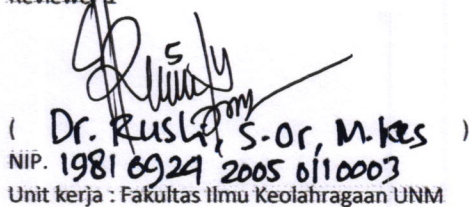 Reviewer 1
( Dr. Rusli, S.Or, M.Kes )
NIP. 19810924 2005 011 0003
Unit kerja : Fakultas Ilmu Keolahragaan UNM